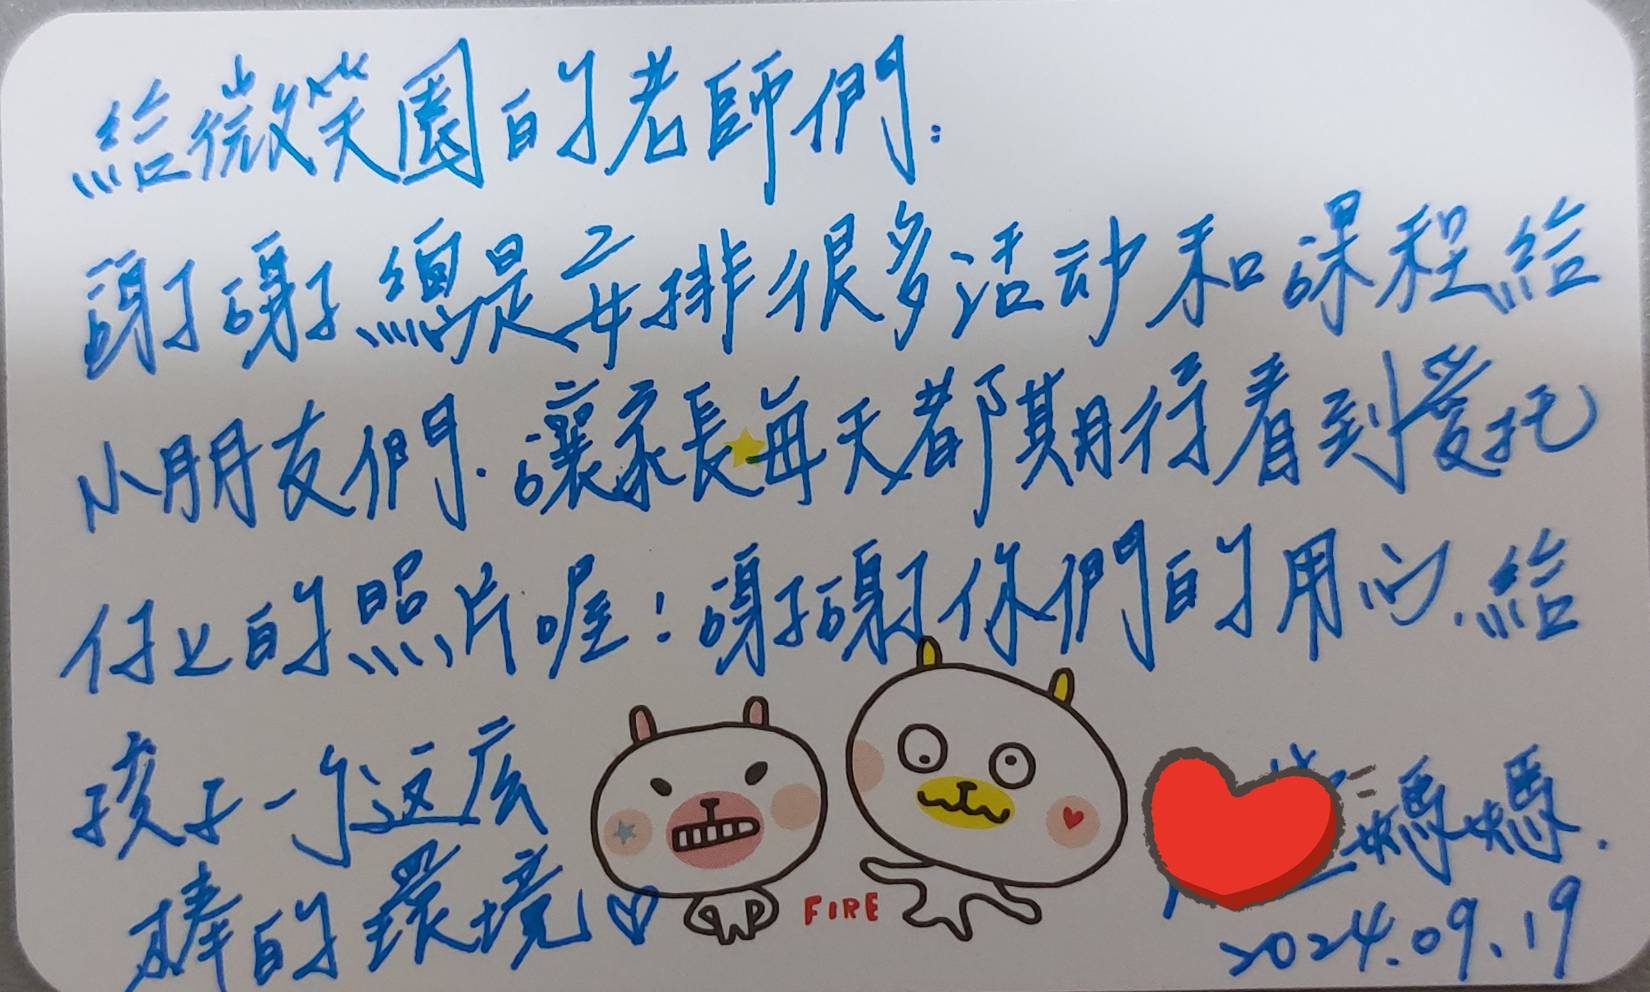 給微笑園的老師們：
謝謝總是安排很多活动和課程給
小朋友們．讓家長每天都期待看到愛托
付上的照片喔！謝謝你們的用心．給
孩子一个这広
棒的環境♡
FIRE
媽媽．
2024.09.19